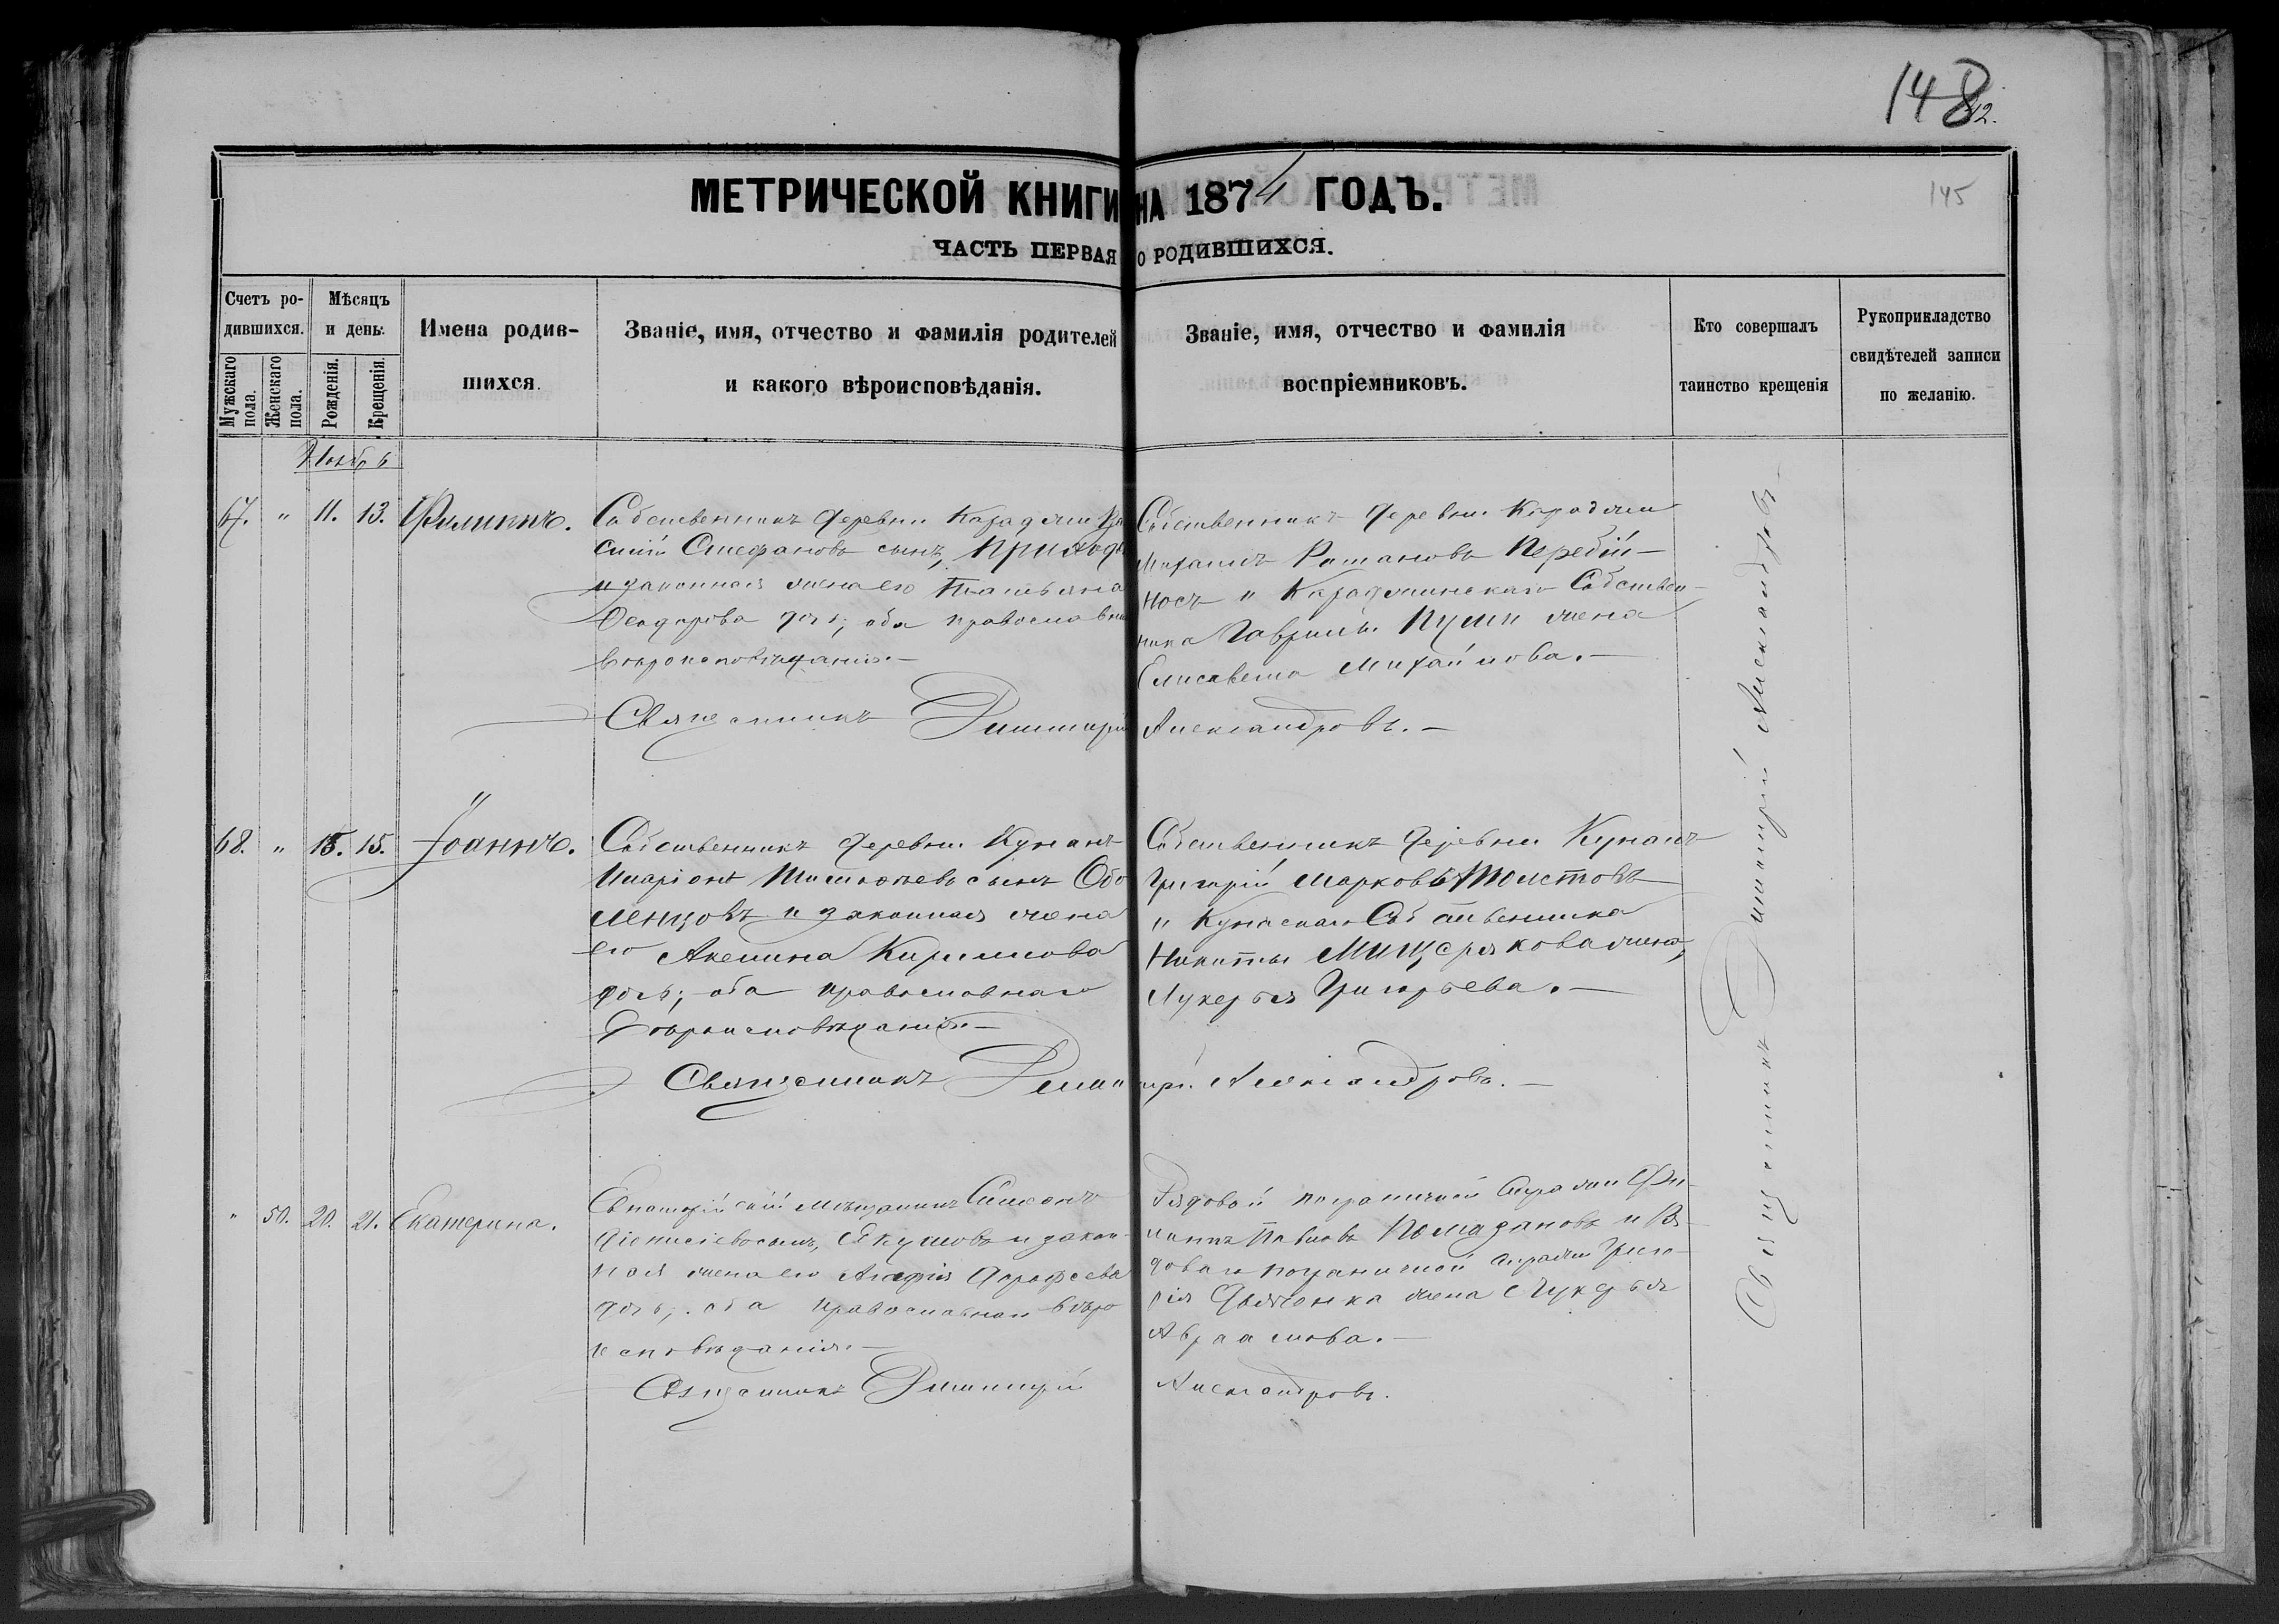 148
12.
145
МЕТРИЧЕСКОЙ КНИГИ НА 1874 ГОДЪ.
ЧАСТЬ ПЕРВАЯ О РОДИВШИХСЯ.
Счетъ родившихся.
Мужскаго пола.
Женскаго пола.
Мѣсяцъ и день.
Рожденія.
Крещенія.
Имена родившихся.
Званіе, имя, отчество и фамилія родителей
и какого вѣроисповѣданія.
Званіе, имя, отчество и фамилія
воспріемниковъ.
Кто совершалъ
таинство крещенія
Рукоприкладство
свидѣтелей записи
по желанію.
Ноябрь
67. " 11. 13. Филиппъ.
Собственникъ деревни
Стефановъ сынъ, Приход
и законная жена его Татьяна
Ѳеодорова дочь; оба православна
вѣроисповѣданія.—
Собственникъ деревни
Романовъ Перебій-
носъ и Собствен-
ника Гавріила жена
Елисавета Михайлова.—
Священникъ Димитрій Александровъ.—
68. " 15. 15. Іоаннъ.
Собственникъ деревни Кунанъ
Иларіонъ сынъ Обо
ленцовъ и законная жена
его Акелина Кириллова
дочь; оба православнаго
вѣроисповѣданія.—
Собственникъ деревни Кунанъ
Григорій Марковъ Толстовъ
и Собственника
Никиты Мищерякова жена,
Лукерья Григорьева.—
Священникъ Димитрій Александровъ.—
" 50. 20. 21. Екатерина.
Евпаторійскій мѣщанинъ Симеонъ
Діонисіевъ сынъ, Якушовъ и закон-
ная жена его Дорофеева
дочь; оба православнаго вѣро
исповѣданія.—
Рядовой пограничной стражи Фи-
липпъ Павловъ и Ря-
доваго пограничной стражи Григо-
рія Дьяченка жена Лукерья
Авраамова.—
Священникъ Димитрій Александровъ.
Священникъ Димитрій Александровъ